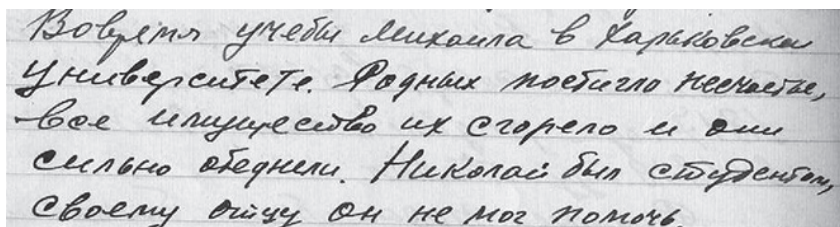 Вовремя учебы Михаила в Харьковском
Университете. Родных постигло несчастье,
все имущество их сгорело и они
сильно обеднели. Николай был студентом,
своему отцу он не мог помочь.